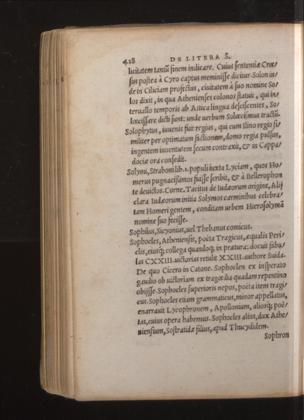 428 DE LITERA S.
licitatem tantũ finem indicare. Cuius sententiæ Crœ
sus postea à Cyro captus meminisse dicitur. Solon in
de in Ciliciam profectus, ciuitatem à suo nomine So
los dixit, in qua Athenienses colonos statuit, qui in
teruallo temporis ab Attica lingua desciscentes, So
lœcissare dicti sunt: unde uerbum Solœcismus tractũ.
Solophytus, iuuenis fuit regius, qui cum Ilino regio si-
militer per optimatum factionem, domo regia pulsus,
ingentem iuuentutem secum contraxit, & in Cappa
docia ora consedit.
Solymi, Straboni lib. populi iuxta Lyciam, quos Ho
merus pugnacissimos fuisse scribit, & à Bellerophon
te deuictos. Corne. Tacitus de Iudæorum origine, Alij
clara Iudæorum initia Solymos carminibus celebra
tam Homeri gentem, conditam urbem Hierosolymã
nomine suo fecisse.
Sophilus, Sicyonius, uel Thebanus comicus.
Sophocles, Atheniensis, poëta Tragicus, æqualis Peri-
clis, eiusq; collega quandoq; in prætura: docuit fabu
las CXXIII. uictorias retulit XXIIII. authore Suida.
De quo Cicero in Catone. Sophoclem ex insperato
gaudio ob uictoriam ex tragœdia quadam repentino
obijsse. Sophocles superioris nepos, poëta item tragi
cus. Sophocles etiam grammaticus, minor appellatus,
enarrauit Lycophronem, Apollonium, aliosq; poë-
tas, cuius opera habemus. Sophocles alius, dux Athe
niensium, Sostratidæ filius, apud Thucydidem.
Sophron